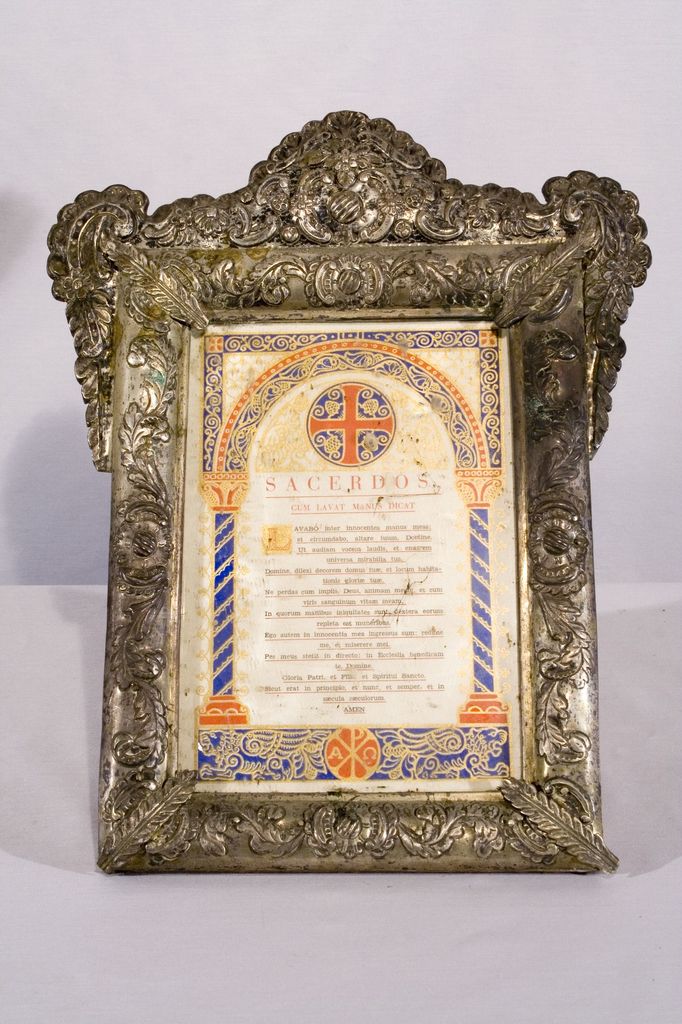 SACERDOS
CUM LAVAT MANUS DICAT
LAVABO inter innocentes manus meas:
et circumdabo, altare tuum, Domine.
Ut audiam vocem laudis, et enarrem
universa mirabilia tua.
Domine, dilexi decorem domus tuæ, et locum habita-
tionis gloriæ tuæ.
Ne perdas cum impiis, Deus, animam meam, et cum
viris sanguinum vitam meam.
In quorum manibus iniquitates sunt, dextera eorum
repleta est muneribus.
Ego autem in innocentia mea ingressus sum: redime
me, et miserere mei.
Pes meus stetit in directo: in Ecclesiis benedicam
te, Domine.
Gloria Patri, et Filio, et Spiritui Sancto.
Sicut erat in principio, et nunc, et semper, et in
sæcula sæculorum.
AMEN
A P Ω